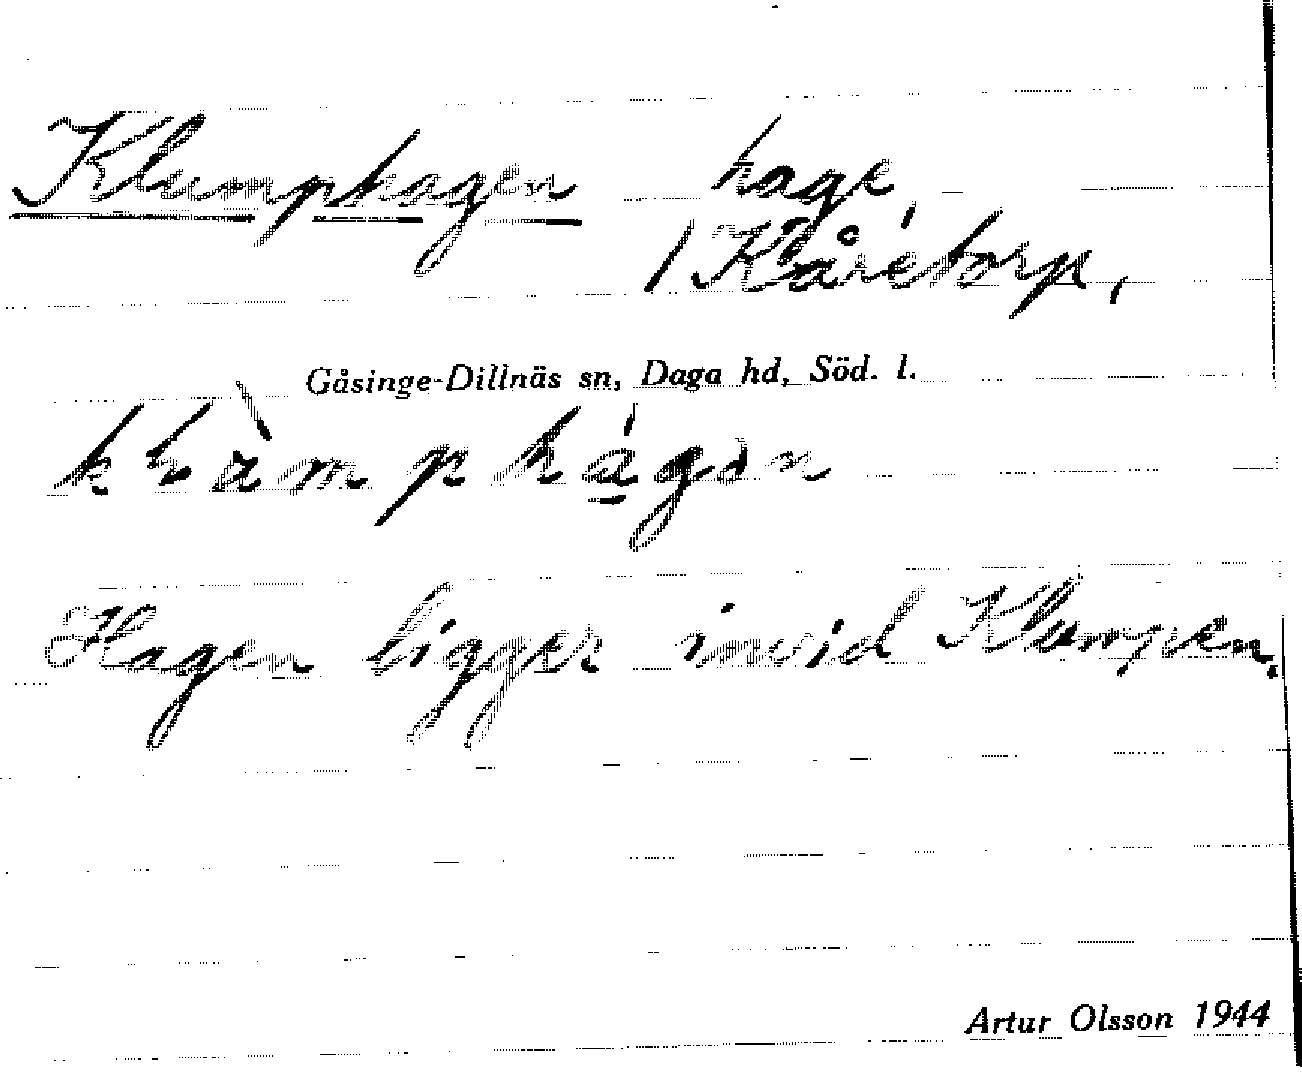 Klumphagen hage,
/ Kåretorp,
Gåsinge-Dillnäs sn, Daga hd, Söd. l.
Hagen ligger invid Klumpen.
Artur Olsson 1944